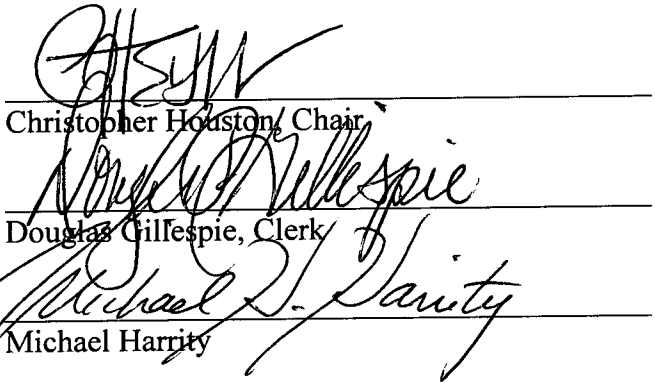 Christopher Houston, Chair
Douglas Gillespie
Douglas Gillespie, Clerk
Michael S. Harrity
Michael Harrity